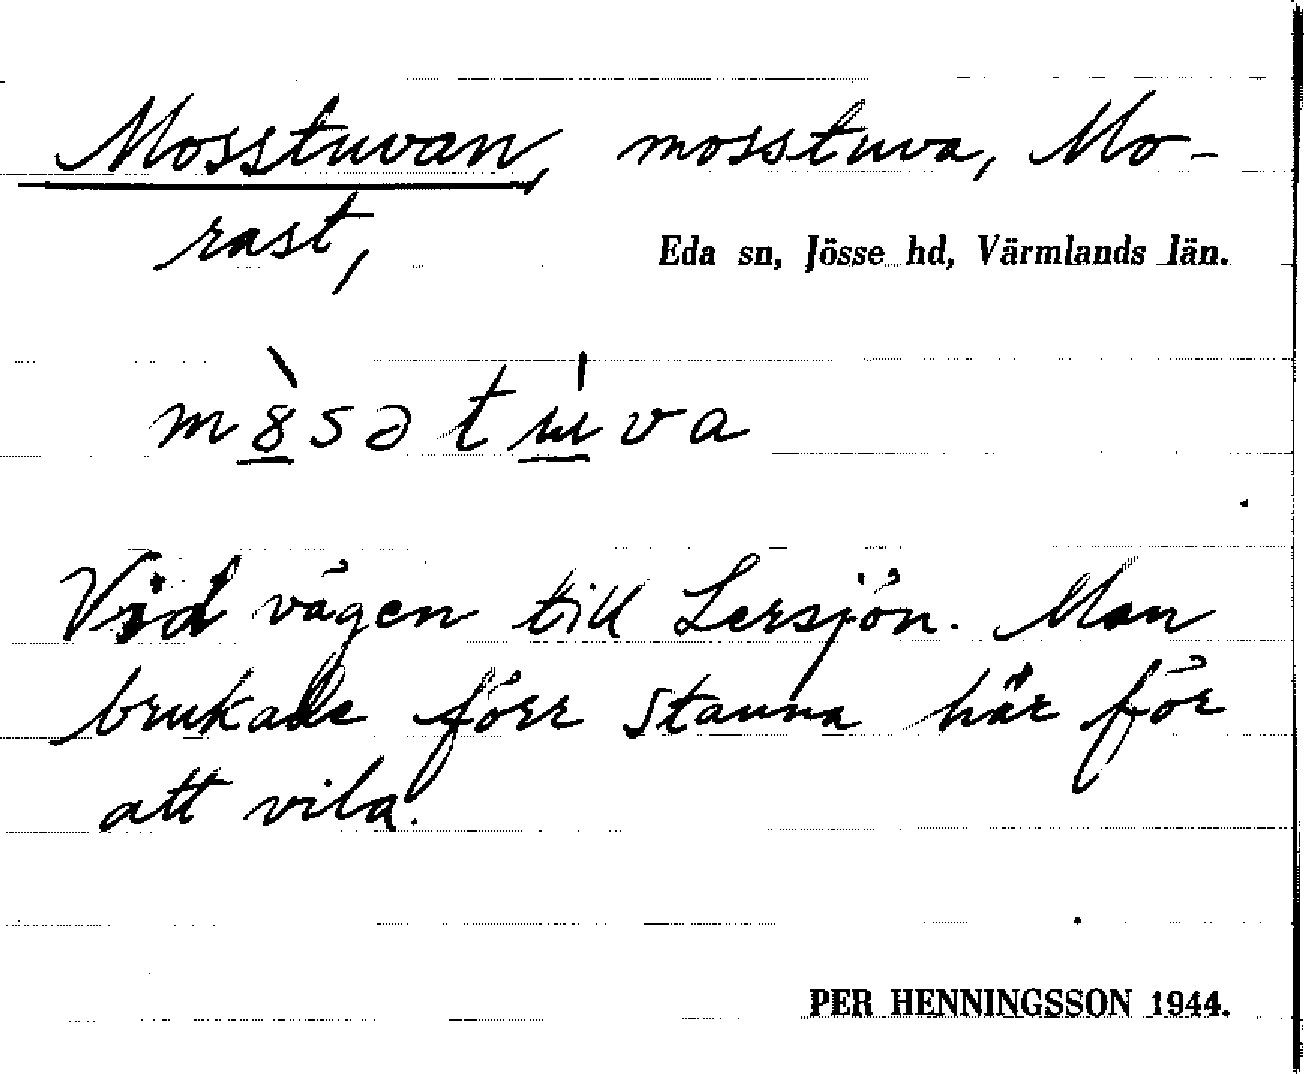 Mosstuvan, mosstuva, Mo-
rast,
Eda sn, Jösse hd, Värmlands län.
m8̀sətɯ́va
Vid vägen till Lersjön. Man
brukade förr stanna här för
att vila.
PER HENNINGSSON 1944.